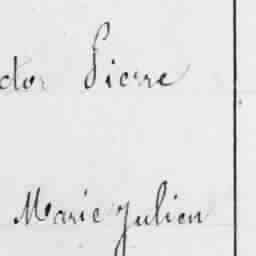 ctor Pierre
Marie Julien